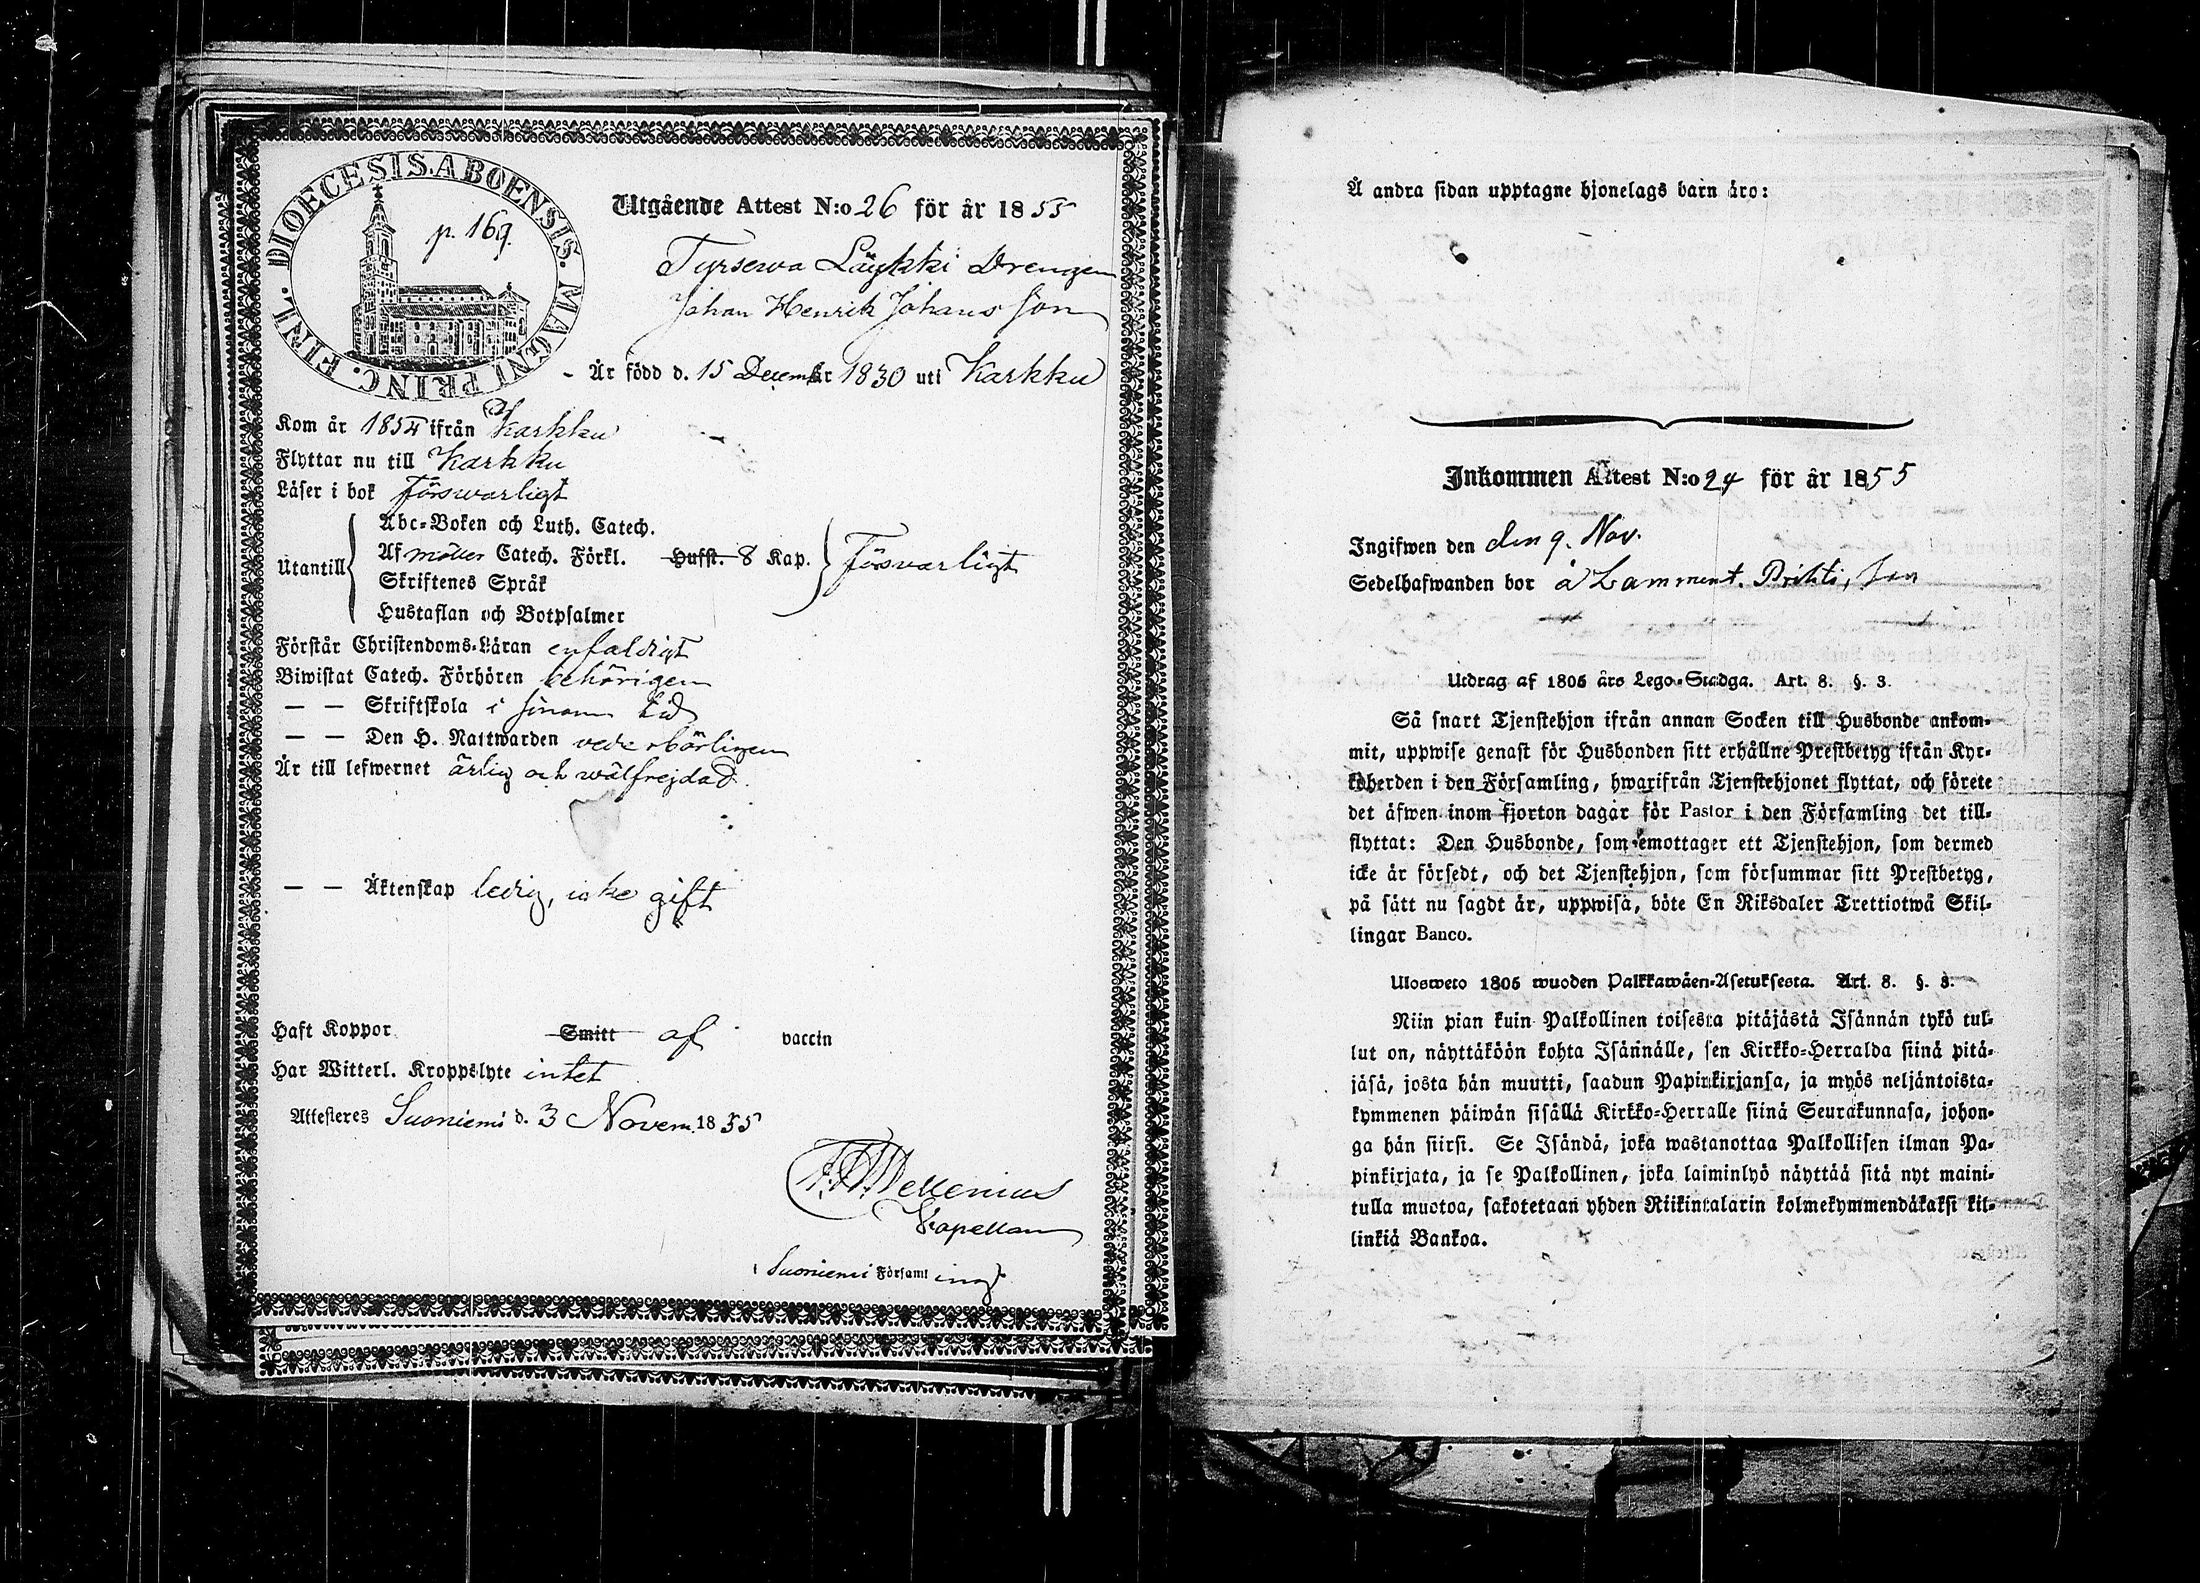 DIOECESIS. ABOENSIS. MAGNI PRINC. FINL.
p. 169.
Utgående Attest N:o 26 för år 1855
Tyrsewa Läykki Drengen
Johan Henrik Johans son
Är född d. 15 December 1830 uti Karkku
Kom år 1854 ifrån Karkku
Flyttar nu till Karkku
Läser i bok försvarligt
Utantill
Abc-Boken och Luth. Catech.
Af möller Catech. Förkl. Husst. 8 Kap.
Skriftenes Språk
Hustaflan och Botpsalmer
Försvarligt
Förstår Christendoms-Läran enfaldigt
Biwistat Catech. Förhören behörigen
— — Skriftskola i sinom tid
— — Den H. Nattwarden vederbörligen
Är till lefwernet ärlig och wälfrejdad.
— — Äktenskap ledig, icke gift
Haft Koppor Smitt af vaccin
Har Witterl. Kroppslyte intet
Attesteras Suoniemi d. 3 Novem. 1855
Mellenius
Capellan
i Suoniemi Församl ing
Å andra sidan upptagne hjonelags barn äro:
Inkommen Attest N:o 24 för år 1855
Ingifwen den den 9. Nov.
Sedelhafwanden bor å Lamment. Prihti,
Utdrag af 1805 års Lego-Stadga. Art. 8. §. 3.
Så snart Tjenstehjon ifrån annan Socken till Husbonde ankom-
mit, uppwise genast för Husbonden sitt erhållne Prestbetyg ifrån Kyr-
koherden i den Församling, hwarifrån Tjenstehjonet flyttat, och förete
det äfwen inom fjorton dagar för Pastor i den Församling det till-
flyttat: Den Husbonde, som emottager ett Tjenstehjon, som dermed
icke är försedt, och det Tjenstehjon, som försummar sitt Prestbetyg,
på sätt nu sagdt är, uppwisa, böte En Riksdaler Trettiotwå Skil-
lingar Banco.
Ulosweto 1805 wuoden Palkkawäen-Asetuksesta. Art. 8. §. 3.
Niin pian kuin Palkollinen toisesta pitäjästä Isännän tykö tul-
lut on, näyttäköön kohta Isännälle, sen Kirkko-Herralda siinä pitä-
jäsä, josta hän muutti, saadun Papinkirjansa, ja myös neljäntoista-
kymmenen päiwän sisällä Kirkko-Herralle siinä Seurakunnasa, johon-
ga hän siirsi. Se Isändä, joka wastanottaa Palkollisen ilman Pa-
pinkirjata, ja se Palkollinen, joka laiminlyö näyttää sitä nyt maini-
tulla muotoa, sakotetaan yhden Riikintalarin kolmekymmendäkaksi kil-
linkiä Bankoa.